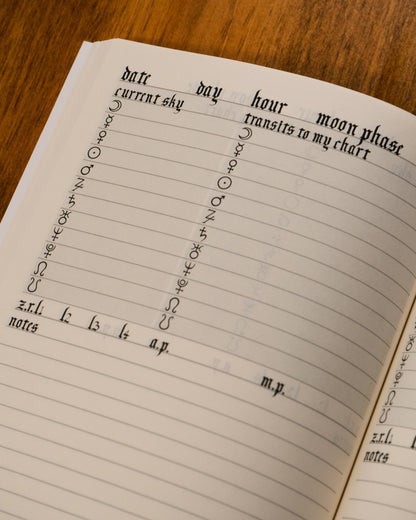 date day hour moon phase
current sky transits to my chart
☽ ☽
☿ ☿
♀ ♀
☉ ☉
♂ ♂
♃ ♃
♄ ♄
♅ ♅
♆ ♆
☊ ☊
☋ ☋
z.r.l: l2 l3 l4 a.p. m.p.
notes
z.r.l:
notes